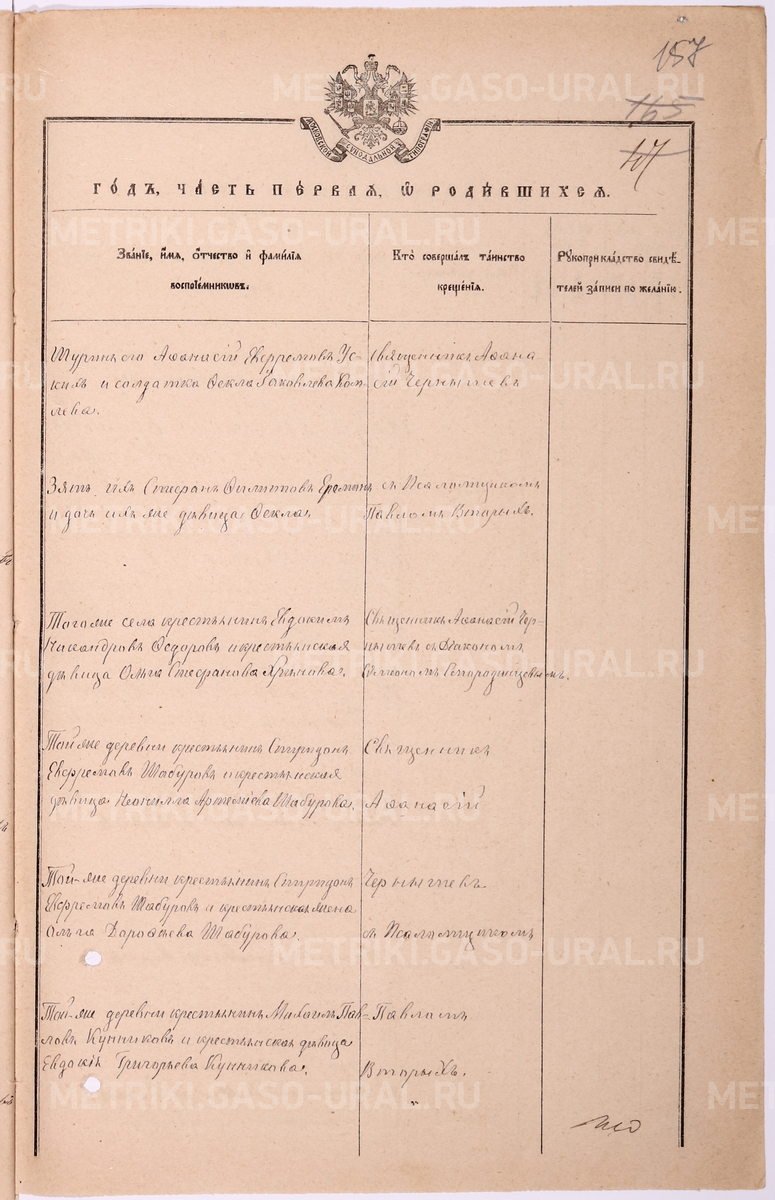 157
165
107
МОСКОВСКОЙ СУНОДАЛЬНОЙ ТИПОГРАФІИ
ГОДЪ, ЧАСТЬ ПЕРВАЯ, Ѡ РОДИВШИХСЯ.
Званіе, имя, отчество и фамилія
воспріемниковъ.
Кто совершалъ таинство
крещенія.
Рукоприкладство свидѣ-
телей записи по желанію.
Шуринъ его Аѳанасій Ефремовъ Ус-
и солдатка Ѳекла Яковлева
Священникъ Аѳана
сій Чернышевъ
Зять ихъ Стефанъ Филиповъ
и дочь ихъ же дѣвица Ѳекла.
съ Псаломщикомъ
Павломъ Вторыхъ.
Тогоже села крестьянинъ Евдокимъ
Никандровъ Ѳедоровъ и крестьянская
дѣвица Ольга Стефанова
Священникъ Аѳанасій Чер-
нышевъ съ Діакономъ
Симеономъ
Той же деревни крестьянинъ Спиридонъ
Ефремовъ Шабуровъ и крестьянская
дѣвица Неонилла Артемьева Шабурова.
Священникъ
Аѳанасій
Той-же деревни крестьянинъ Спиридонъ
Ефремовъ Шабуровъ и крестьянская жена
Ольга Дороѳеева Шабурова.
Чернышевъ
съ Псаломщикомъ
Той-же деревни крестьянинъ Михаилъ Пав-
ловъ Кунниковъ и крестьянская дѣвица
Евдокія Григорьева Кунникова.
Павломъ
Вторыхъ.
METRIKI.GASO-URAL.RU